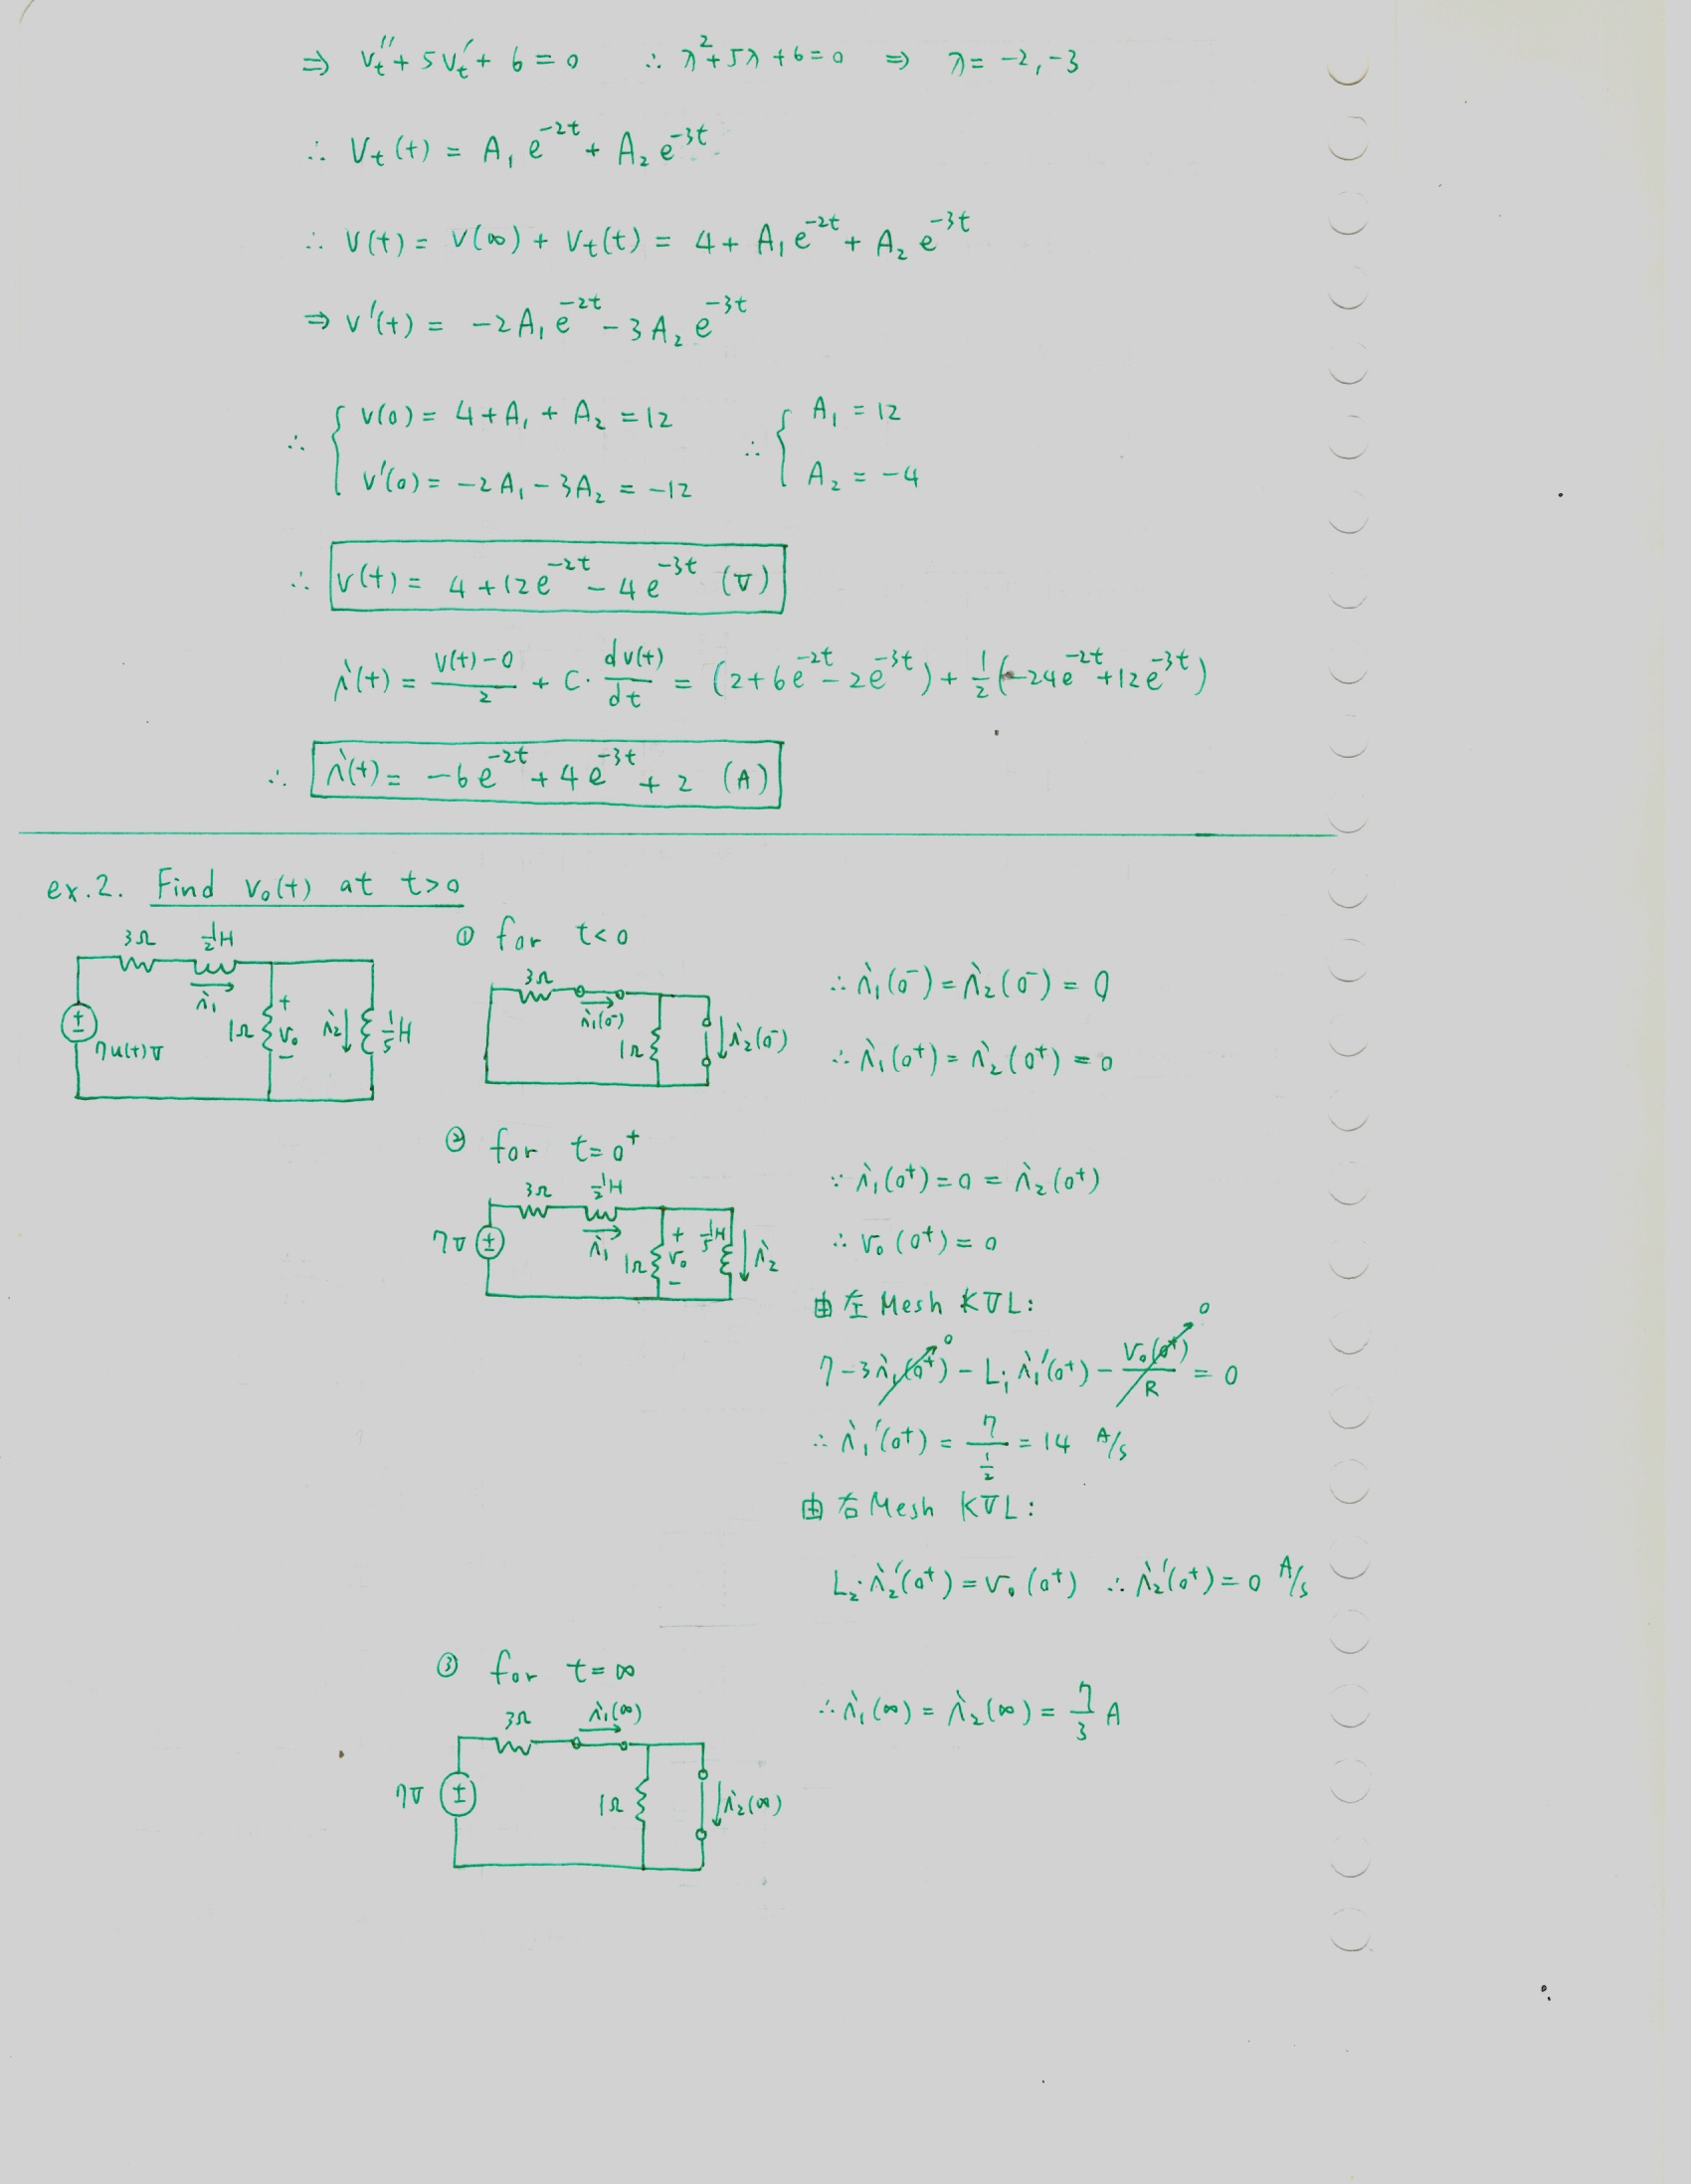 ⇒ v_t'' + 5v_t' + 6 = 0 ∴ λ² + 5λ + 6 = 0 ⇒ λ = -2, -3
∴ V_t(t) = A₁e^{-2t} + A₂e^{-3t}
∴ V(t) = V(∞) + V_t(t) = 4 + A₁e^{-2t} + A₂e^{-3t}
⇒ v'(t) = -2A₁e^{-2t} - 3A₂e^{-3t}
∴ { v(0) = 4 + A₁ + A₂ = 12 ∴ { A₁ = 12
v'(0) = -2A₁ - 3A₂ = -12 A₂ = -4
∴ v(t) = 4 + 12e^{-2t} - 4e^{-3t} (V)
i(t) = (v(t)-0)/2 + C · dv(t)/dt = (2 + 6e^{-2t} - 2e^{-3t}) + 1/2(-24e^{-2t} + 12e^{-3t})
∴ i(t) = -6e^{-2t} + 4e^{-3t} + 2 (A)
ex.2. Find v₀(t) at t>0
3Ω 1/2H
i₁
7u(t)V
1Ω
+ v₀ -
i₂ 1/5H
① for t<0
3Ω
i₁(0⁻)
1Ω
i₂(0⁻)
∴ i₁(0⁻) = i₂(0⁻) = 0
∴ i₁(0⁺) = i₂(0⁺) = 0
② for t=0⁺
3Ω 1/2H
7V
i₁
1Ω
+ v₀ -
1/5H
i₂
∵ i₁(0⁺) = 0 = i₂(0⁺)
∴ v₀(0⁺) = 0
由左Mesh KVL:
7 - 3i₁(0⁺)→0 - L₁i₁'(0⁺) - v₀(0⁺)/R→0 = 0
∴ i₁'(0⁺) = 7/(1/2) = 14 A/s
由右Mesh KVL:
L₂·i₂'(0⁺) = v₀(0⁺) ∴ i₂'(0⁺) = 0 A/s
③ for t=∞
3Ω
i₁(∞)
7V
1Ω
i₂(∞)
∴ i₁(∞) = i₂(∞) = 7/3 A